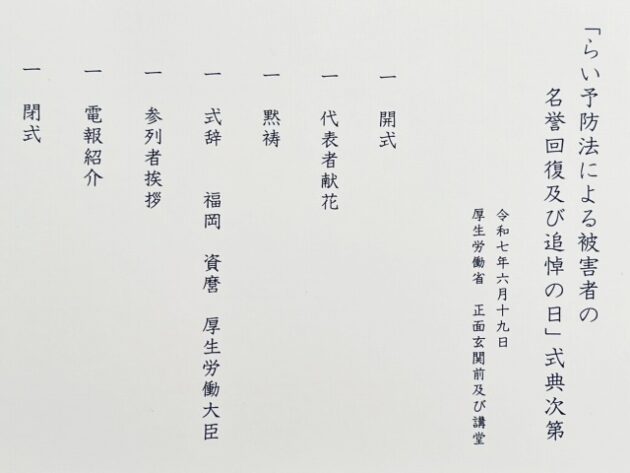 「らい予防法による被害者の
名誉回復及び追悼の日」式典次第
令和七年六月十九日
厚生労働省 正面玄関前及び講堂
一 開式
一 代表者献花
一 黙祷
一 式辞 福岡 資麿 厚生労働大臣
一 参列者挨拶
一 電報紹介
一 閉式